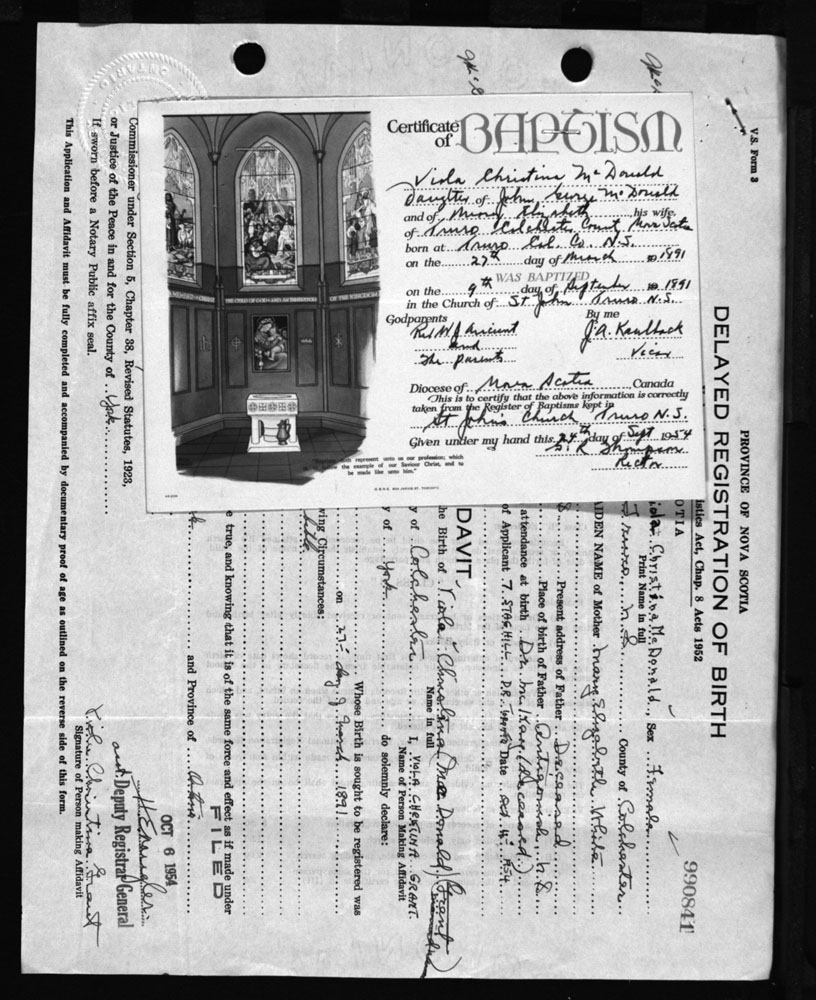 Certificate of BAPTISM
Viola Christina McDonald
Daughter of John George McDonald
and of Mary Elizabeth his wife,
of Truro Colchester County Nova Scotia
born at Truro Col. Co. N.S.
on the 27th day of March 1891
WAS BAPTIZED
on the 9th day of September 1891
in the Church of St John Truro N.S.
Godparents By me
Rev W J Ancient J A Kaulback
and Vicar
The parents
Diocese of Nova Scotia, Canada
This is to certify that the above information is correctly
taken from the Register of Baptisms kept in
St John's Church Truro N.S.
Given under my hand this 24th day of Sept 1954
Thompson
Rector
THE CHILD OF GOD AND AN INHERITOR OF THE KINGDOM
represent unto us our profession; which
the example of our Saviour Christ, and to
be made like unto him."
V.S. Form 3
PROVINCE OF NOVA SCOTIA
DELAYED REGISTRATION OF BIRTH
istics Act, Chap. 8 Acts 1952
990841
OTIA
iola Christina McDonald Sex Female
Print Name in full
Truro, N.S. County of Colchester
AIDEN NAME of Mother Mary Elizabeth White
Present address of Father Deceased
Place of birth of Father Antigonish, N.S.
attendance at birth Dr. McKay (Deceased.)
of Applicant 7 STAG HILL DR. Date
DAVIT
he Birth of Viola Christina MacDonald (Grant)
Name in full
y of Colchester I, VIOLA CHRISTINA GRANT.
Name of Person Making Affidavit
y of York do solemnly declare:
Whose Birth is sought to be registered was
on 27th day of March 1891.
wing Circumstances:
e true, and knowing that it is of the same force and effect as if made under
FILED
OCT 6 1954
and Province of Ontario
Deputy Registrar General
Viola Christina Grant
Signature of Person making Affidavit
Commissioner under Section 5, Chapter 38, Revised Statutes, 1923,
or Justice of the Peace in and for the County of York
If sworn before a Notary Public affix seal.
This Application and Affidavit must be fully completed and accompanied by documentary proof of age as outlined on the reverse side of this form.
ONTARIO